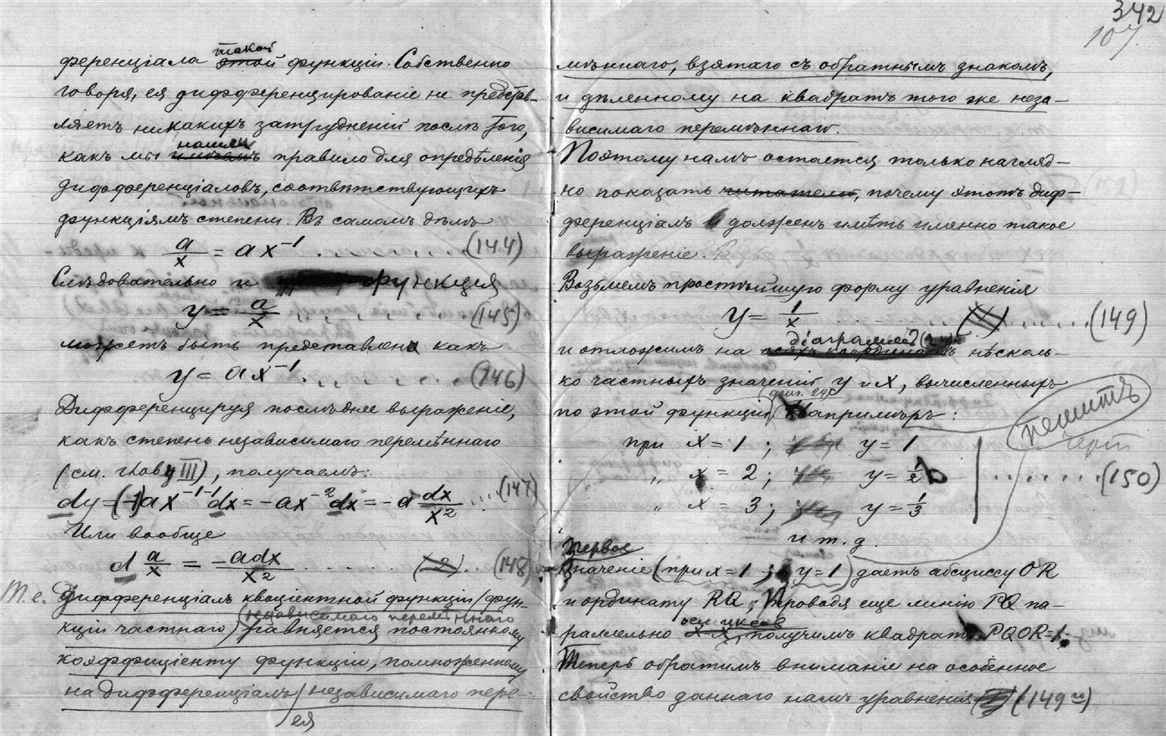 342
107.
ференціала такой функціи. Собственно
говоря, ея дифференцированіе не представ-
ляетъ никакихъ затрудненій послѣ того,
какъ мы нашли правило для опредѣленія
дифференціаловъ, соотвѣтствующихъ
функціямъ степени. Въ самомъ дѣлѣ
a/x = ax⁻¹ . . . . . . (144)
Слѣдовательно и функція
y = a/x . . . . . . (145)
можетъ быть представлена какъ
y = ax⁻¹ . . . . . . (146)
Дифференцируя послѣднее выраженіе,
какъ степень независимаго перемѣннаго
(см. главу III), получаемъ:
dy = (-1)ax⁻¹⁻¹dx = -ax⁻²dx = -a dx/x² .... (147)
Или вообще
d a/x = -adx/x² . . . . (148)
Т.е. Дифференціалъ квоціентной функціи (фун-
кціи частнаго) (независимаго перемѣннаго) равняется постоянному
коэффиціенту функціи, помноженному
на дифференціалъ ея независимаго пере-
мѣннаго, взятаго съ обратнымъ знакомъ,
и дѣленному на квадратъ того же неза-
висимаго перемѣннаго.
Поэтому намъ остается только нагляд-
но показать читателю, почему этотъ диф-
ференціалъ долженъ имѣть именно такое
выраженіе.
Возьмемъ простѣйшую форму уравненія
y = 1/x . . . . . . (149)
и отложимъ на діаграммѣ нѣсколь-
ко частныхъ значеній y и x, вычисленныхъ
по этой функціи. Напримѣръ:
при x = 1; y = 1
„ x = 2; y = 1/2 . . . . . . (150)
„ x = 3; y = 1/3
и т. д.
Первое
значеніе (при x = 1; y = 1) даетъ абсциссу OR
и ординату RQ. Проводя еще линію PQ па-
раллельно оси иксовъ, получимъ квадратъ PQOR=1.
Теперь обратимъ вниманіе на особенное
свойство даннаго намъ уравненія (149го)